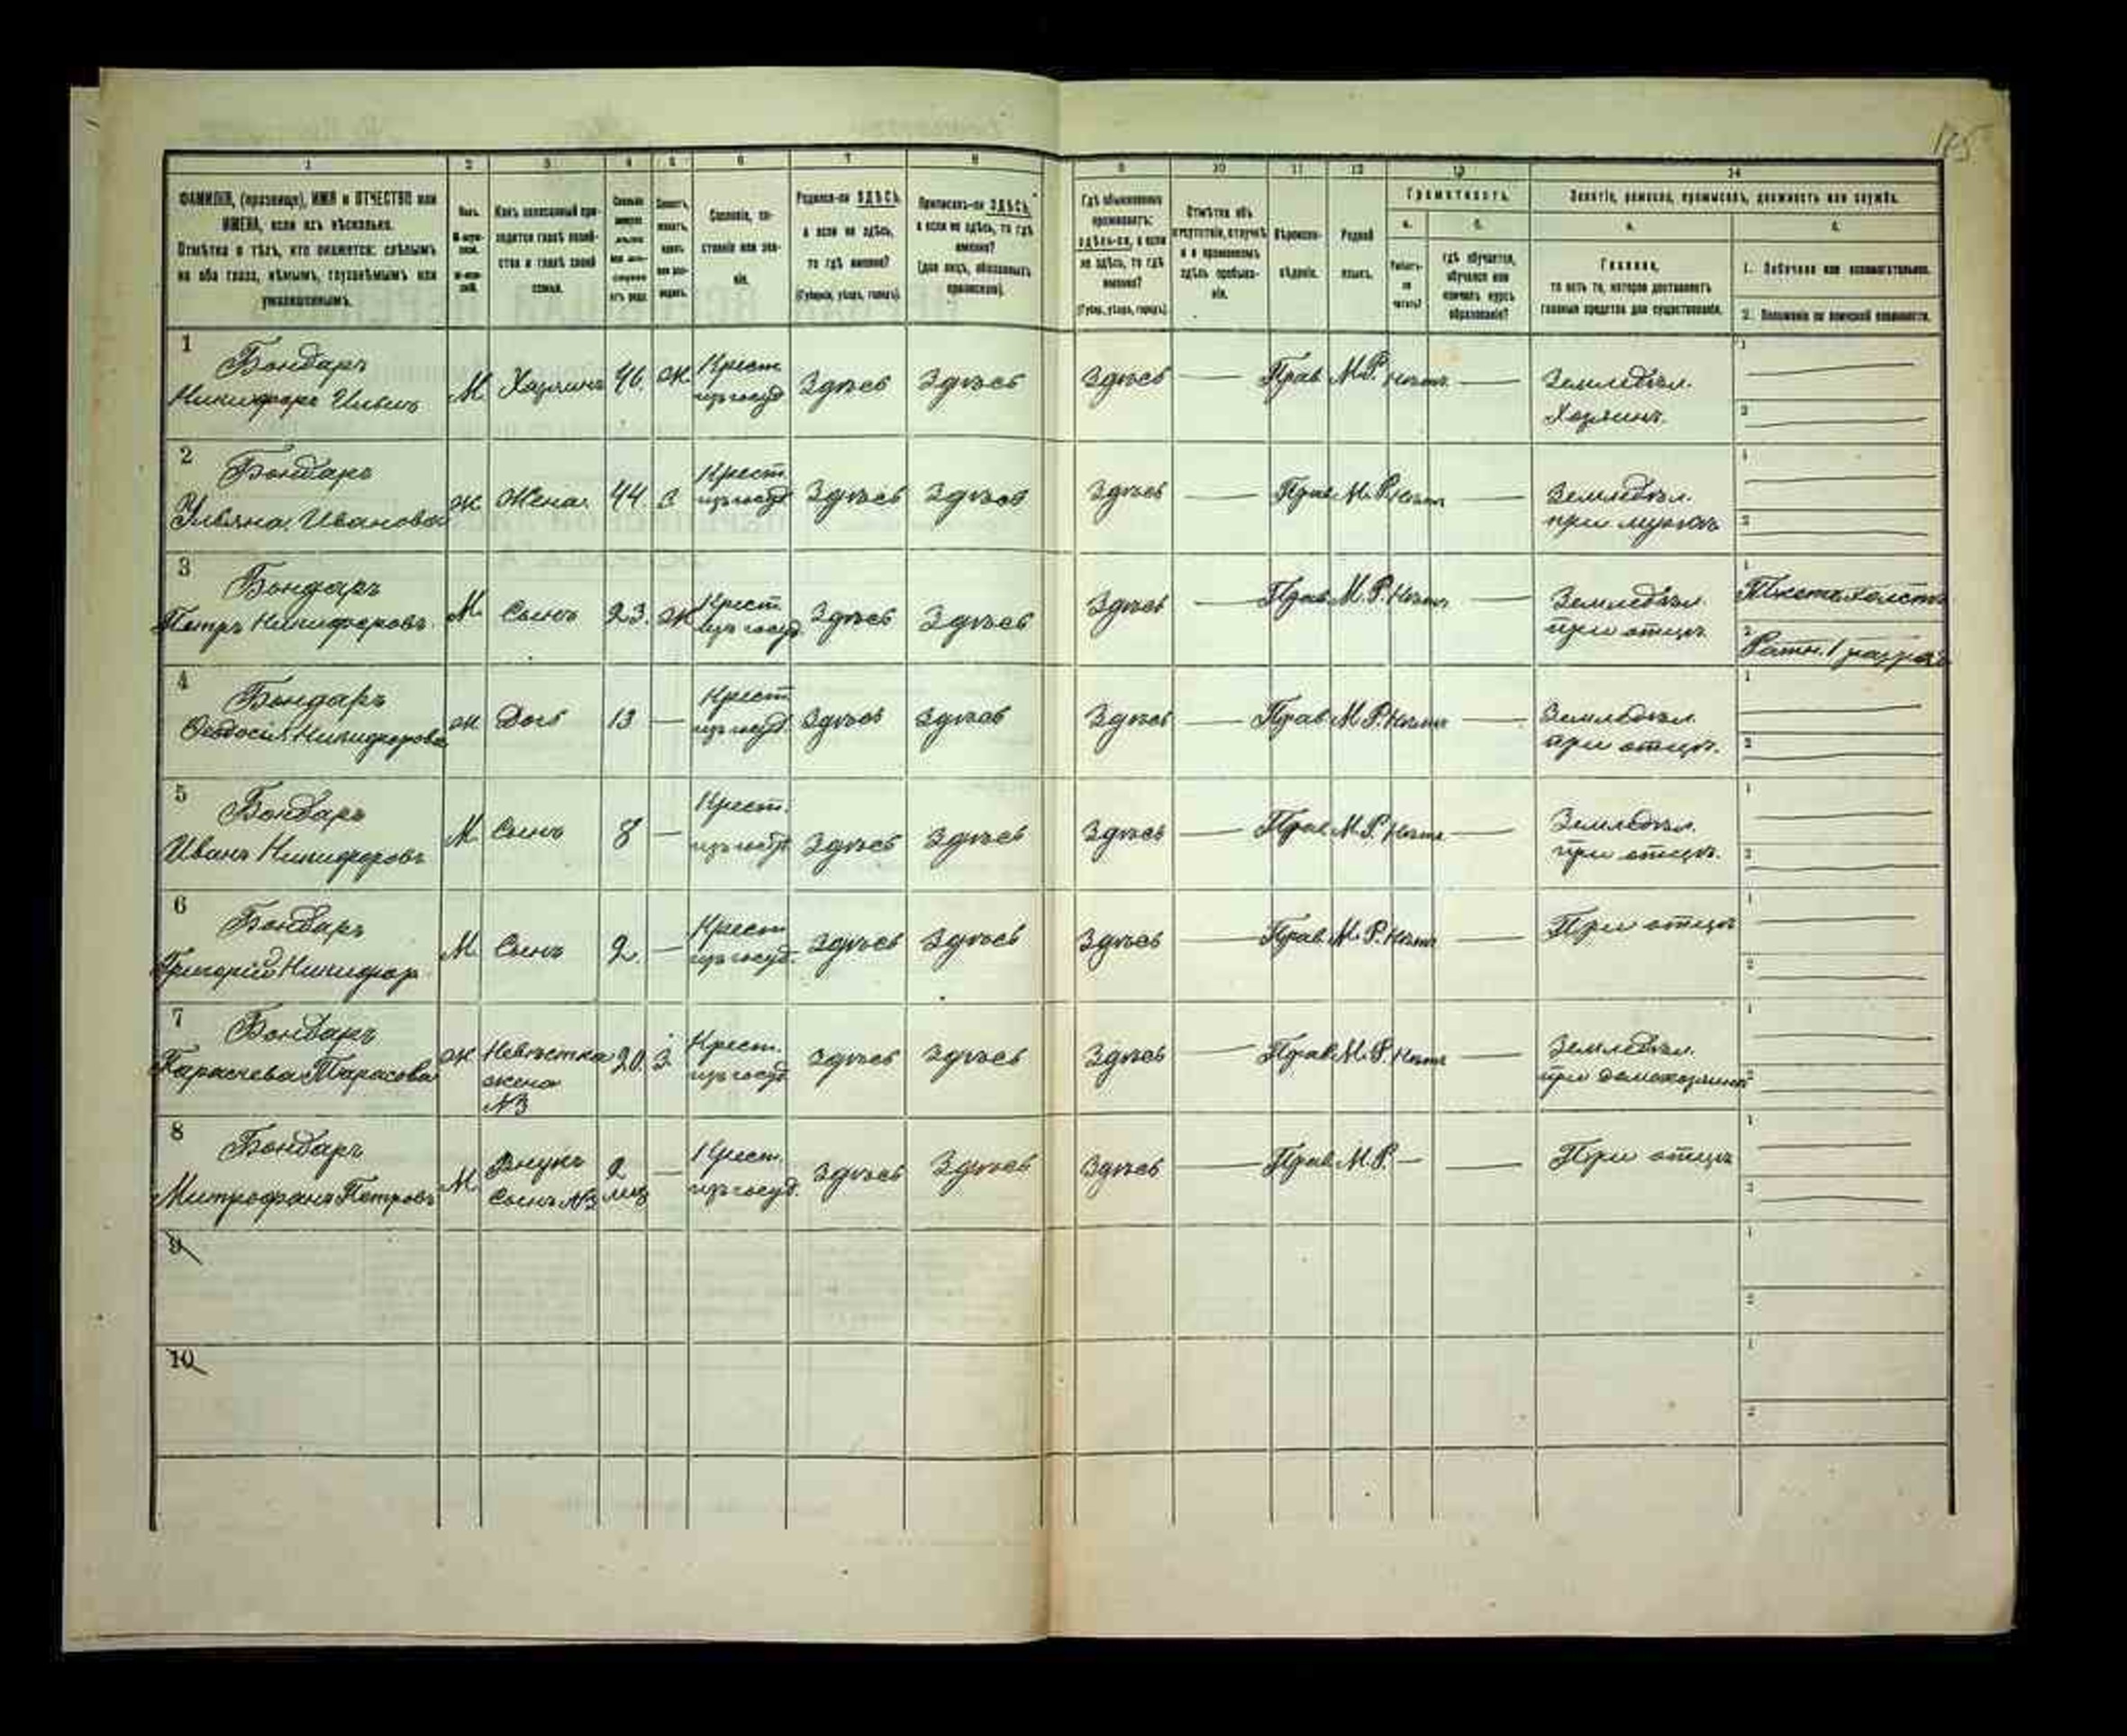 165
1 2 3 4 5 6 7 8 9 10 11 12 13 14
ФАМИЛІЯ, (прозвище), ИМЯ и ОТЧЕСТВО или
ИМЕНА, если ихъ нѣсколько.
Отмѣтка о тѣхъ, кто окажется: слѣпымъ
на оба глаза, нѣмымъ, глухонѣмымъ или
умалишеннымъ.
Полъ.
Какъ записанный при-
ходится главѣ хозяй-
ства и главѣ своей
семьи.
Сословіе, со-
стояніе или зва-
ніе.
Родился-ли ЗДѢСЬ,
а если не здѣсь,
то гдѣ именно?
(Губернія, уѣздъ, городъ).
Приписанъ-ли ЗДѢСЬ,
а если не здѣсь, то гдѣ
именно?
(для лицъ, обязанныхъ
припискою).
Гдѣ обыкновенно
проживаетъ:
здѣсь-ли, а если
не здѣсь, то гдѣ
именно?
(Губер., уѣздъ, городъ)
Отмѣтка объ
отсутствіи, отлучкѣ
и о временномъ
здѣсь пребыва-
ніи.
Вѣроиспо-
вѣданіе.
Родной
языкъ.
Грамотность.
а. б.
Умѣетъ-
ли
читать?
гдѣ обучается,
обучался или
кончилъ курсъ
образованія?
Занятіе, ремесло, промыселъ, должность или служба.
а. б.
Главное,
то есть то, которое доставляетъ
главныя средства для существованія.
1. Побочное или вспомогательное.
2. Положеніе по воинской повинности.
1 Бондарь
Никифоръ Ильинъ М Хозяинъ 46 Ж Крест. изъ госуд. Здѣсь Здѣсь Здѣсь — Прав М.Р. Нѣтъ — Земледѣл. Хозяинъ.
2 Бондарь
Ульяна Иванова Ж Жена. 44 З Крест. изъ госуд. Здѣсь Здѣсь Здѣсь — Прав М.Р. Нѣтъ Земледѣл. при мужѣ
3 Бондарь
Петръ Никифоровъ. М Сынъ 23. Ж Крест. изъ госуд. Здѣсь Здѣсь Здѣсь — Прав М.Р. Нѣтъ Земледѣл. при отцѣ
Ратн. 1 разряд
4 Бондарь
Ѳеодосія Никифорова Ж Дочь 13 — Крест. изъ госуд. Здѣсь Здѣсь Здѣсь — Прав М.Р. Нѣтъ — Земледѣл. при отцѣ.
5 Бондарь
Иванъ Никифоровъ М Сынъ 8 — Крест. изъ госуд. Здѣсь Здѣсь Здѣсь — Прав М.Р. Нѣтъ — Земледѣл. при отцѣ.
6 Бондарь
Григорій Никифор. М Сынъ 2 — Крест. изъ госуд. Здѣсь Здѣсь Здѣсь — Прав М.Р. Нѣтъ — При отцѣ
7 Бондарь
Тарасова Ж Невѣстка жена №3 20. З. Крест. изъ госуд. Здѣсь Здѣсь Здѣсь — Прав М.Р. Нѣтъ — Земледѣл. при домохозяинѣ
8 Бондарь
Митрофанъ Петровъ М Внукъ Сынъ №3 2 мѣс — Крест. изъ госуд. Здѣсь Здѣсь Здѣсь — Прав М.Р. — — При отцѣ
9
10